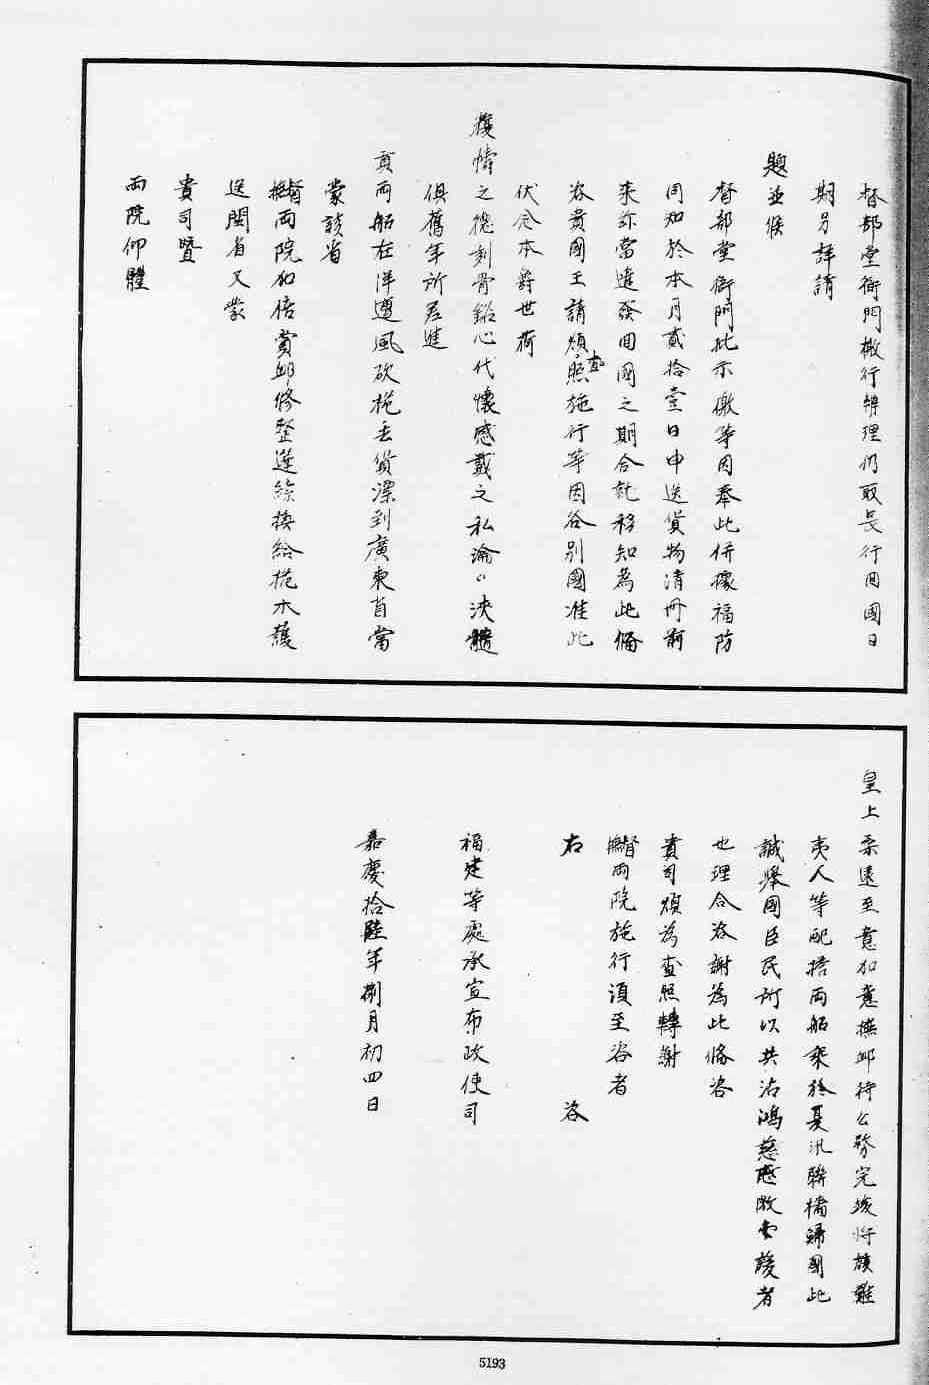 督部堂衙門檄行辦理仍取長行回國日
期另詳請
題並候
督部堂衙門批示繳等因奉此併據福防
同知於本月貳拾壹日申送貨物清冊前
來玆當遣發回國之期合就移知為此備
咨貴國王請煩查照施行等因咨別國准此
伏念本爵世荷
覆幬之德刻骨銘心代懷感戴之私淪〻浹髓
俱舊年所差進
貢兩船在洋遭風砍桅丟貨漂到廣東省當
蒙該省
督撫兩院加倍賞卹修整逆給換給桅木護
送閩省又蒙
貴司暨
兩院仰體
皇上柔遠至意加意撫卹待公務完竣將該難
夷人等配搭兩船乘於夏汛聯檣歸國此
誠舉國臣民所以共沾鴻慈感激 護者
也理合咨謝為此備咨
貴司煩為查照轉謝
督撫兩院施行須至咨者
右 咨
福建等處承宣布政使司
嘉慶拾陸年捌月初四日
5193